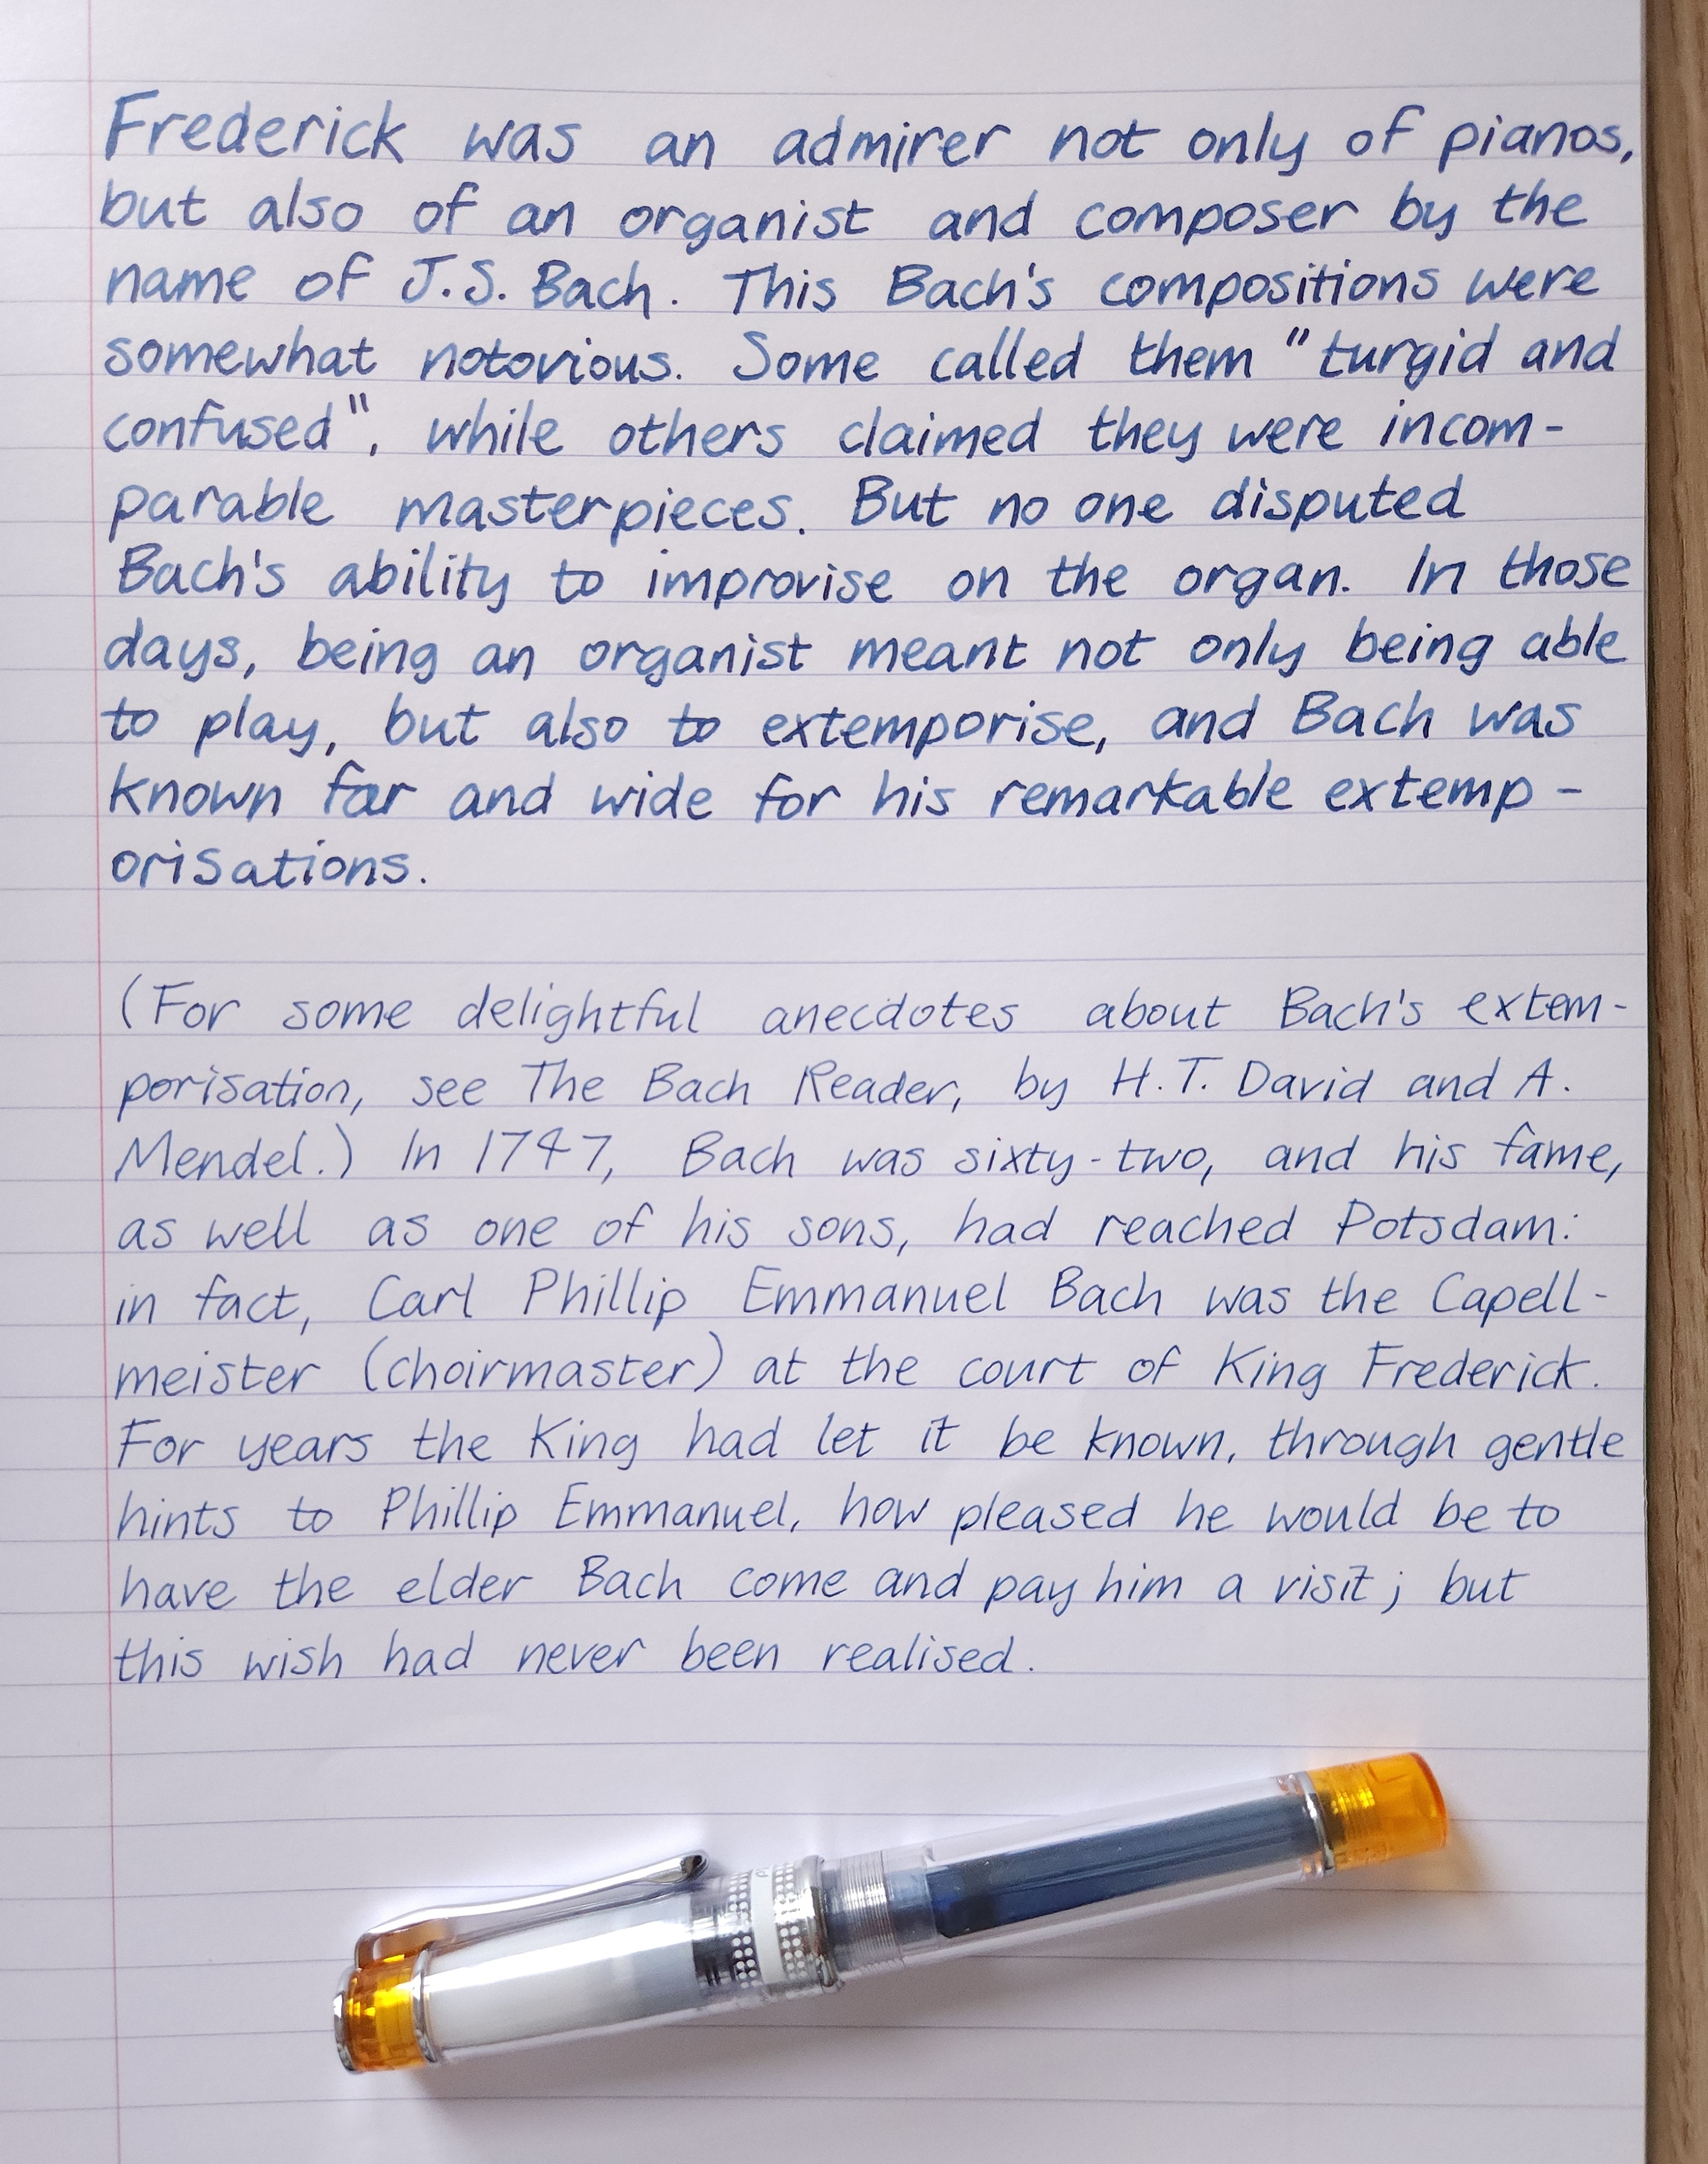 Frederick was an admirer not only of pianos,
but also of an organist and composer by the
name of J.S. Bach. This Bach's compositions were
somewhat notorious. Some called them "turgid and
confused", while others claimed they were incom-
parable masterpieces. But no one disputed
Bach's ability to improvise on the organ. In those
days, being an organist meant not only being able
to play, but also to extemporise, and Bach was
known far and wide for his remarkable extemp-
orisations.
(For some delightful anecdotes about Bach's extem-
porisation, see The Bach Reader, by H.T. David and A.
Mendel.) In 1747, Bach was sixty-two, and his fame,
as well as one of his sons, had reached Potsdam:
in fact, Carl Phillip Emmanuel Bach was the Capell-
meister (choirmaster) at the court of King Frederick.
For years the King had let it be known, through gentle
hints to Phillip Emmanuel, how pleased he would be to
have the elder Bach come and pay him a visit; but
this wish had never been realised.